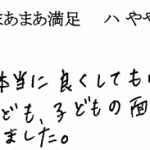 まあまあ満足 ハ やや
本当に良くしても
ども、子どもの面
ました。